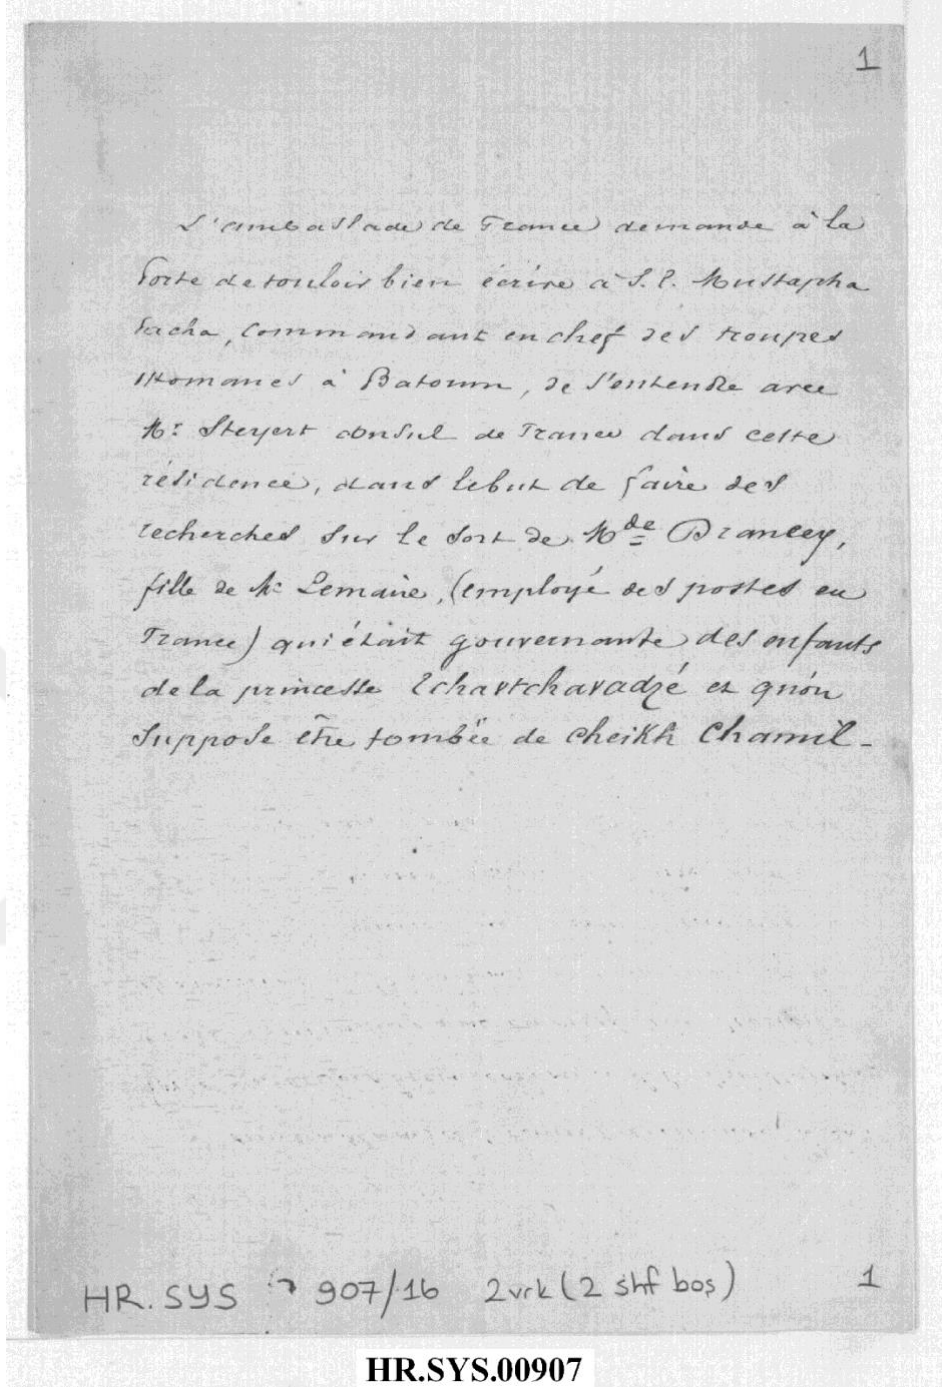 1
L'ambassade de France demande à la
Porte de vouloir bien écrire à S. E. Mustapha
Pacha, commandant en chef des troupes
ottomanes à Batoum, de s'entendre avec
Mr. Steyert consul de France dans cette
résidence, dans le but de faire des
recherches sur le sort de Mde Drancey,
fille de Mr Lemaire, (employé des postes en
France) qui était gouvernante des enfants
de la princesse Tchavtchavadzé et qu'on
suppose être tombée de cheikh Chamil -
HR.SYS 907/16 2vrk (2 shf boş) 1
HR.SYS.00907